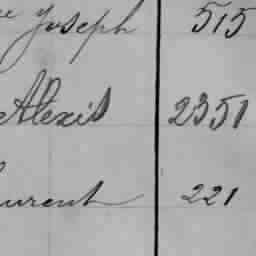 Joseph 515
Alexis 2351
221